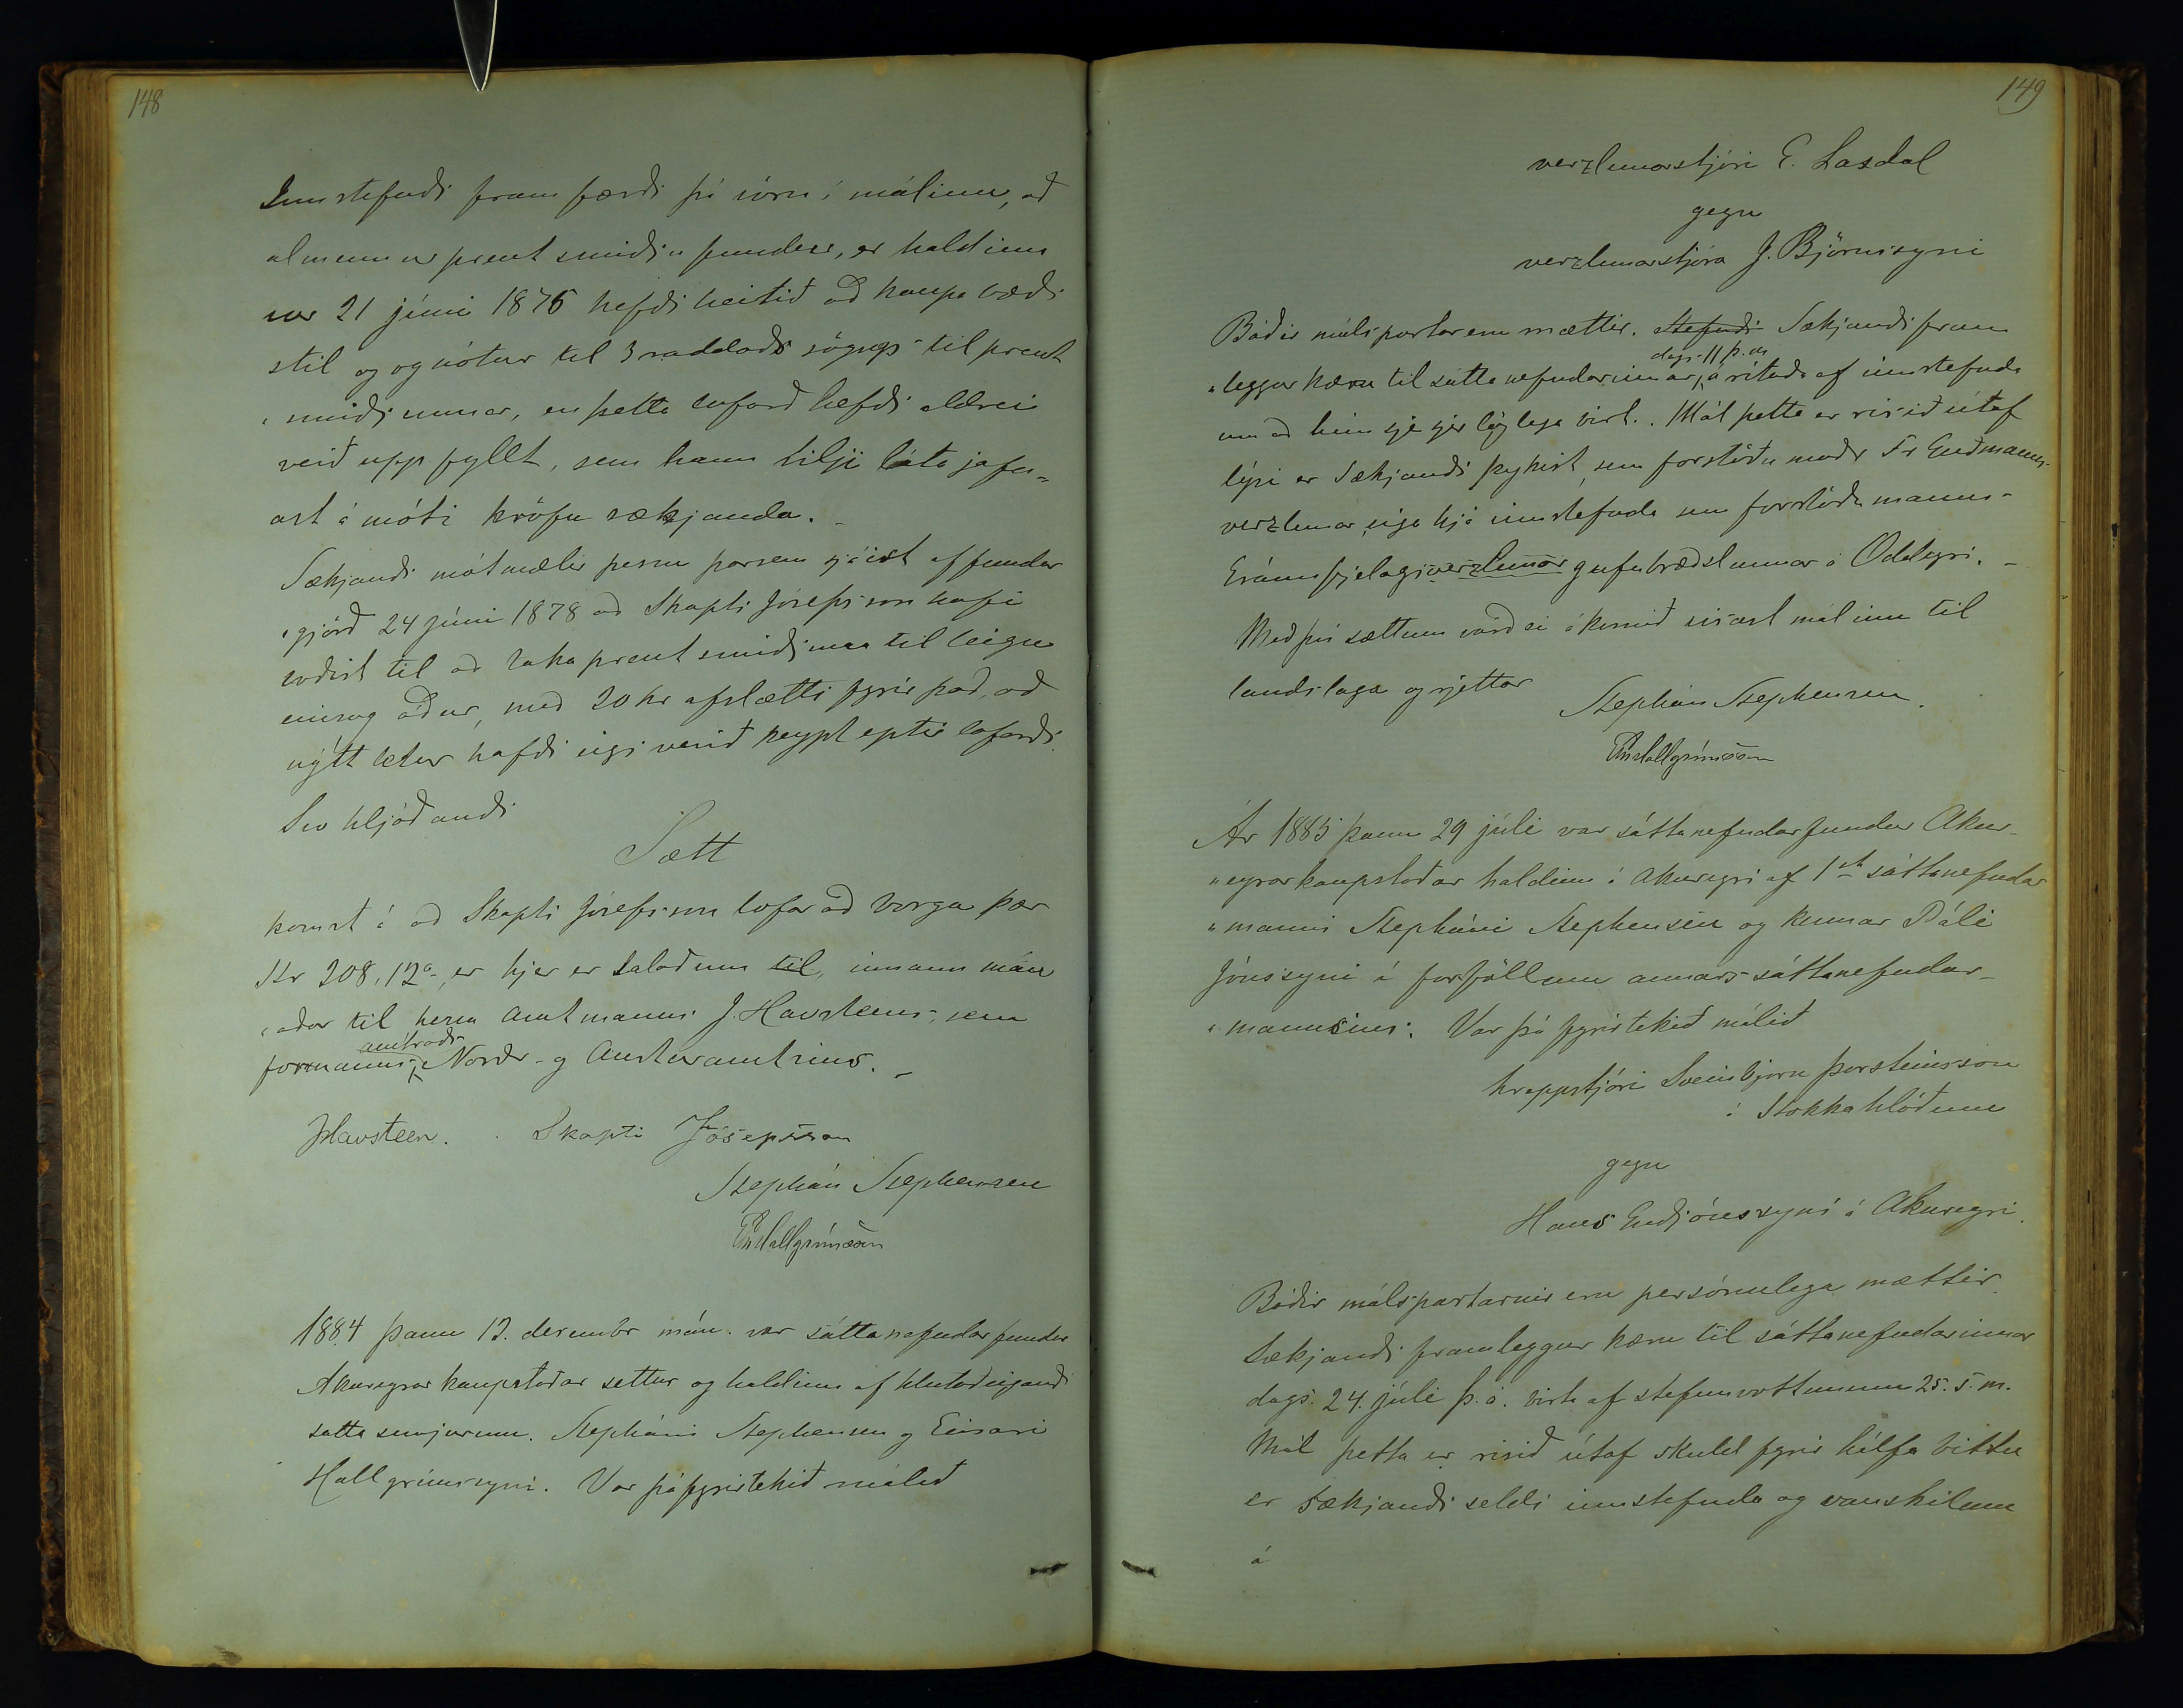 148
Innstefndi fram færði þá vörn í málinu, að
almennur prentsmiðju fundur, er haldinn
var 21 júní 1876 hefði heitið að kaupa bæði
stil og og nótur til 3 raddaðs söngs til prent
„smiðjunnar, en þetta loforð hefði aldrei
verið upp fyllt, sem hann vilji láta jafn„
ast á móti kröfu sækjanda. –
Sækjandi mótmælir þessu þarsem sjáist af fundar
„gjörð 24 júní 1878 að Skapti Jósepsson hafi
boðist til að taka prentsmiðjuna til leigu
einsog áður, með 20 kr afslætti fyrir það, að
nýtt letur hafði eigi verið keypt eptir loforði.
Svo hljóðandi
Sætt
komst á að Skapti Jósefsson lofar að borga þær
Kr 208,12a, er hjer er talað um til, innann mán
„aðar til herra Amtmanns J. Havsteens, sem
amtráðs
formanns Norðr- og Austuramtsins. –
JHavsteen. Skapti Jósepsson
Stephán Stephensen
EinHallgrímsson
1884 þann 12. desembr mán. var sáttanefndarfundur
Akureyrar kaupstaðar settur og haldinn af hlutaðeigandi
sátta semjurum. Stepháni Stephensen og Einari
Hallgrímssyni. Var þá fyrirtekið málið
149
verzlunarstjóri E. Laxdal
gegn
verzlunarstjóra J. Björnssyni
Báðir málspartar eru mættir. Stefndi Sækjandi fram
dags. 11 þ. m
„leggur kæru til sáttanefndarinnar, áritaða af innstefnda
um að hún sje sjer löglega birt. Mál þetta er risið útaf
lýsi er Sækjandi þykist, sem forstöðumaðr Fr Guðmanns-
verzlunar, eiga hjá innstefnda sem forstöðumanns-
Gránufjelagsverzlunar gufubræðslunnar á Oddeyri. –
Með því sættum varð ei ákomið vísast málinu til
landslaga og rjettar
Stephán Stephensen.
EinHallgrímsson
Ár 1885 þann 29 júli var sáttanefndarfundur Akur-
„eyrarkaupstaðar haldinn á Akureyri af 1sta sáttanefndar
„manni Stepháni Stephensen og kennar Páli
Jónssyni í forföllum annars sáttanefndar-
„mannsins. Var þá fyrirtekið málið
hreppstjóri Sveinbjörn Þorsteinsson
á Stokkahlöðum
gegn
Hans Guðjónssyni á Akureyri.
Báðir málspartarnir eru persónulega mættir.
Sækjandi framleggur kæru til sáttanefndarinnar
dags. 24. júli þ. á. birta af stefnuvottunum 25. s. m.
Mál þetta er risið útaf skuld fyrir hálfa bittu
er Sækjandi seldi innstefnda og vanskilum
á